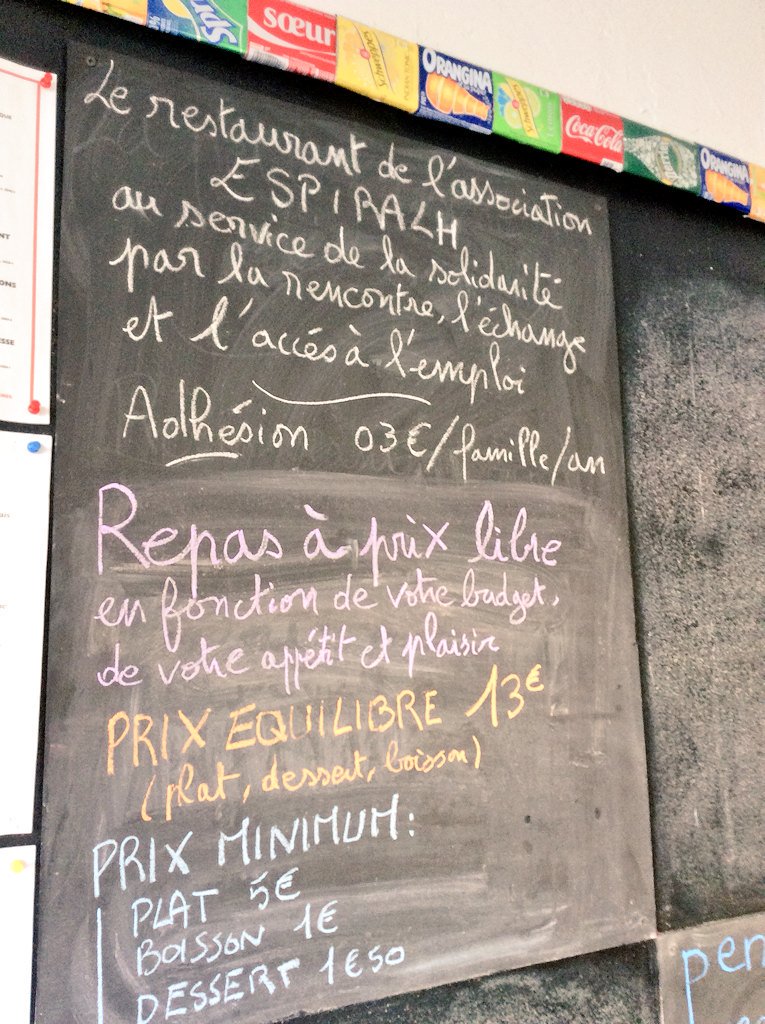 sœur
Schweppes
ORANGINA
Schweppes
Coca-Cola
ORANGINA
Le restaurant de l'association
ESPIRALH
au service de la solidarité
par la rencontre, l'échange
et l'accés à l'emploi
Adhésion 03€/famille/an
Repas à prix libre
en fonction de votre budget,
de votre appétit et plaisir
PRIX EQUILIBRE 13€
(plat, dessert, boisson)
PRIX MINIMUM:
PLAT 5€
BOISSON 1€
DESSERT 1€50
pen